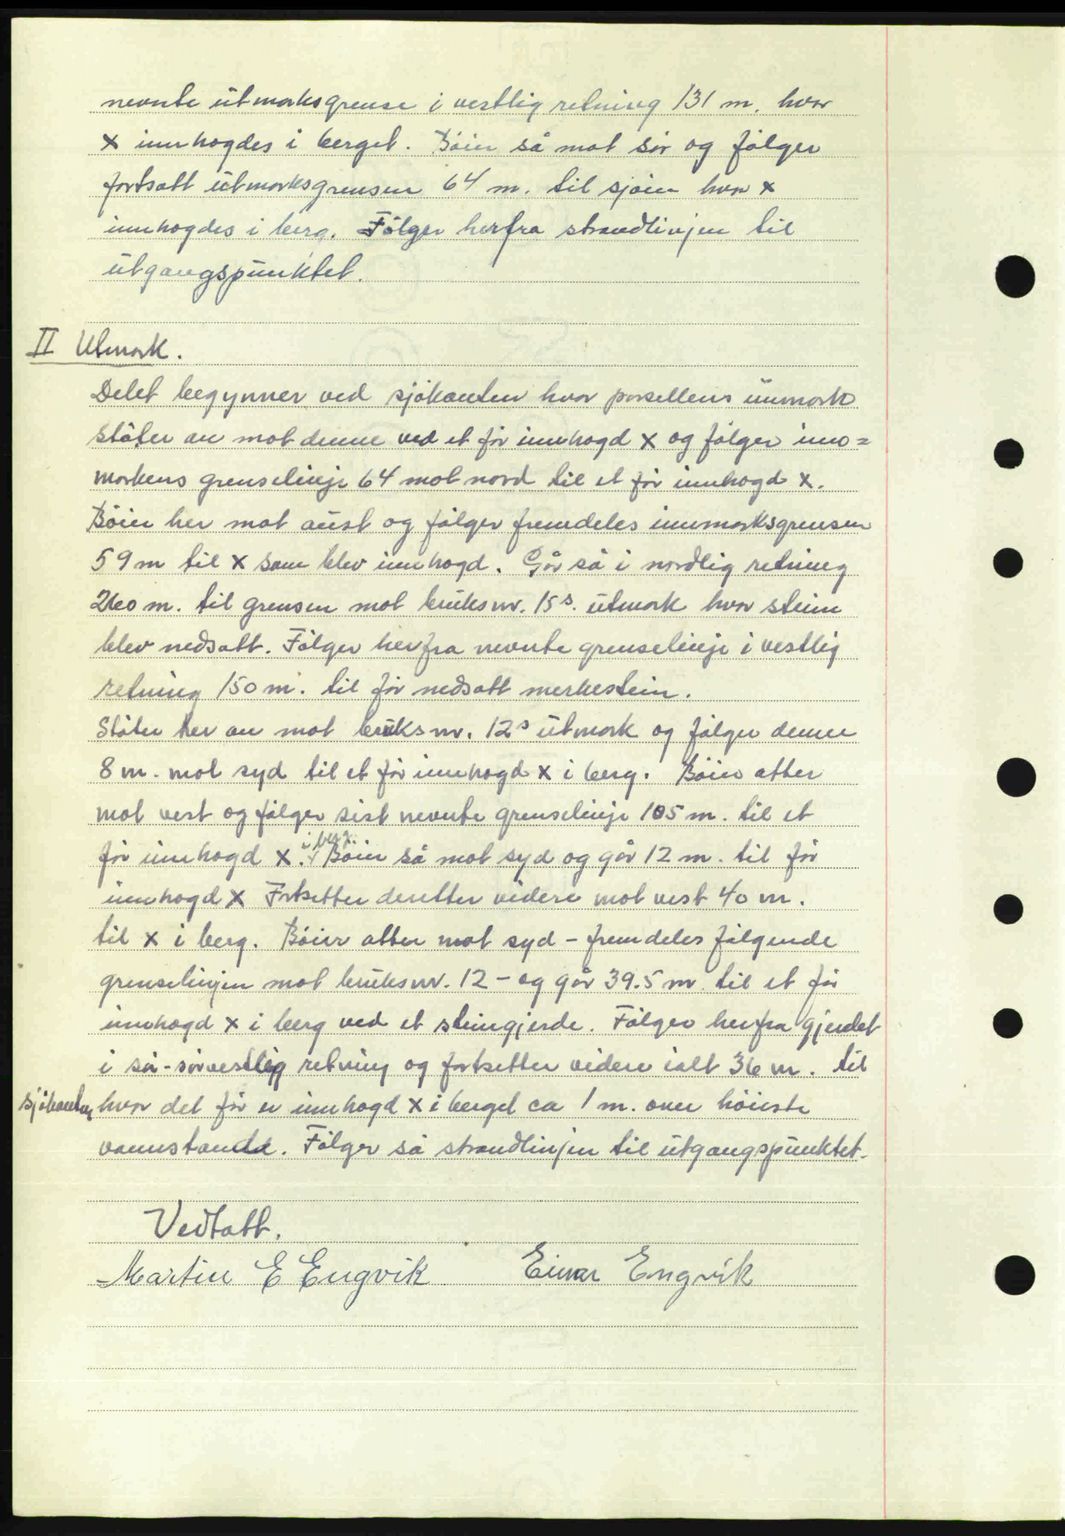 nevnte utmarksgrense i vestlig retning 131 m. hvor
x innhogdes i berget. Böier så mot sör og fölger
fortsatt utmarksgrensen 64 m. til sjöen hvor x
innhogdes i berg. Fölger herfra strandlinjen til
utgangspunktet.
II Utmark.
Delet begynner ved sjökanten hvor parsellens innmark
stöter an mot denne ved et för innhogd x og fölger inn=
markens grenselinje 64 mot nord til et för innhogd x.
Böier her mot aust og fölger fremdeles innmarksgrensen
59 m til x som blev innhogd. Går så i nordlig retning
260 m. til grensen mot bruksnr. 15s. utmark hvor stein
blev nedsatt. Fölger herfra nevnte grenselinje i vestlig
retning 150 m. til för nedsatt merkestein.
Stöter her an mot bruksnr. 12s utmark og fölger denne
8 m. mot syd til et för innhogd x i berg. Böier atter
mot vest og fölger sist nevnte grenselinje 105 m. til et
för innhogd x. i berg. Böier så mot syd og går 12 m. til för
innhogd x Fortsetter deretter videre mot vest 40 m.
til x i berg. Böier atter mot syd - fremdeles fölgende
grenselinjen mot bruksnr. 12 - og går 39.5 m til et för
innhogd x i berg ved et steingjerde. Fölger herfra gjerdet
i sör-sörvestlig retning og fortsetter videre ialt 36 m. til
sjökanten hvor det för er innhogd x i berget ca 1 m. over höieste
vannstande. Fölger så strandlinjen til utgangspunktet.
Vedtatt.
Martin E Engvik Einar Engvik